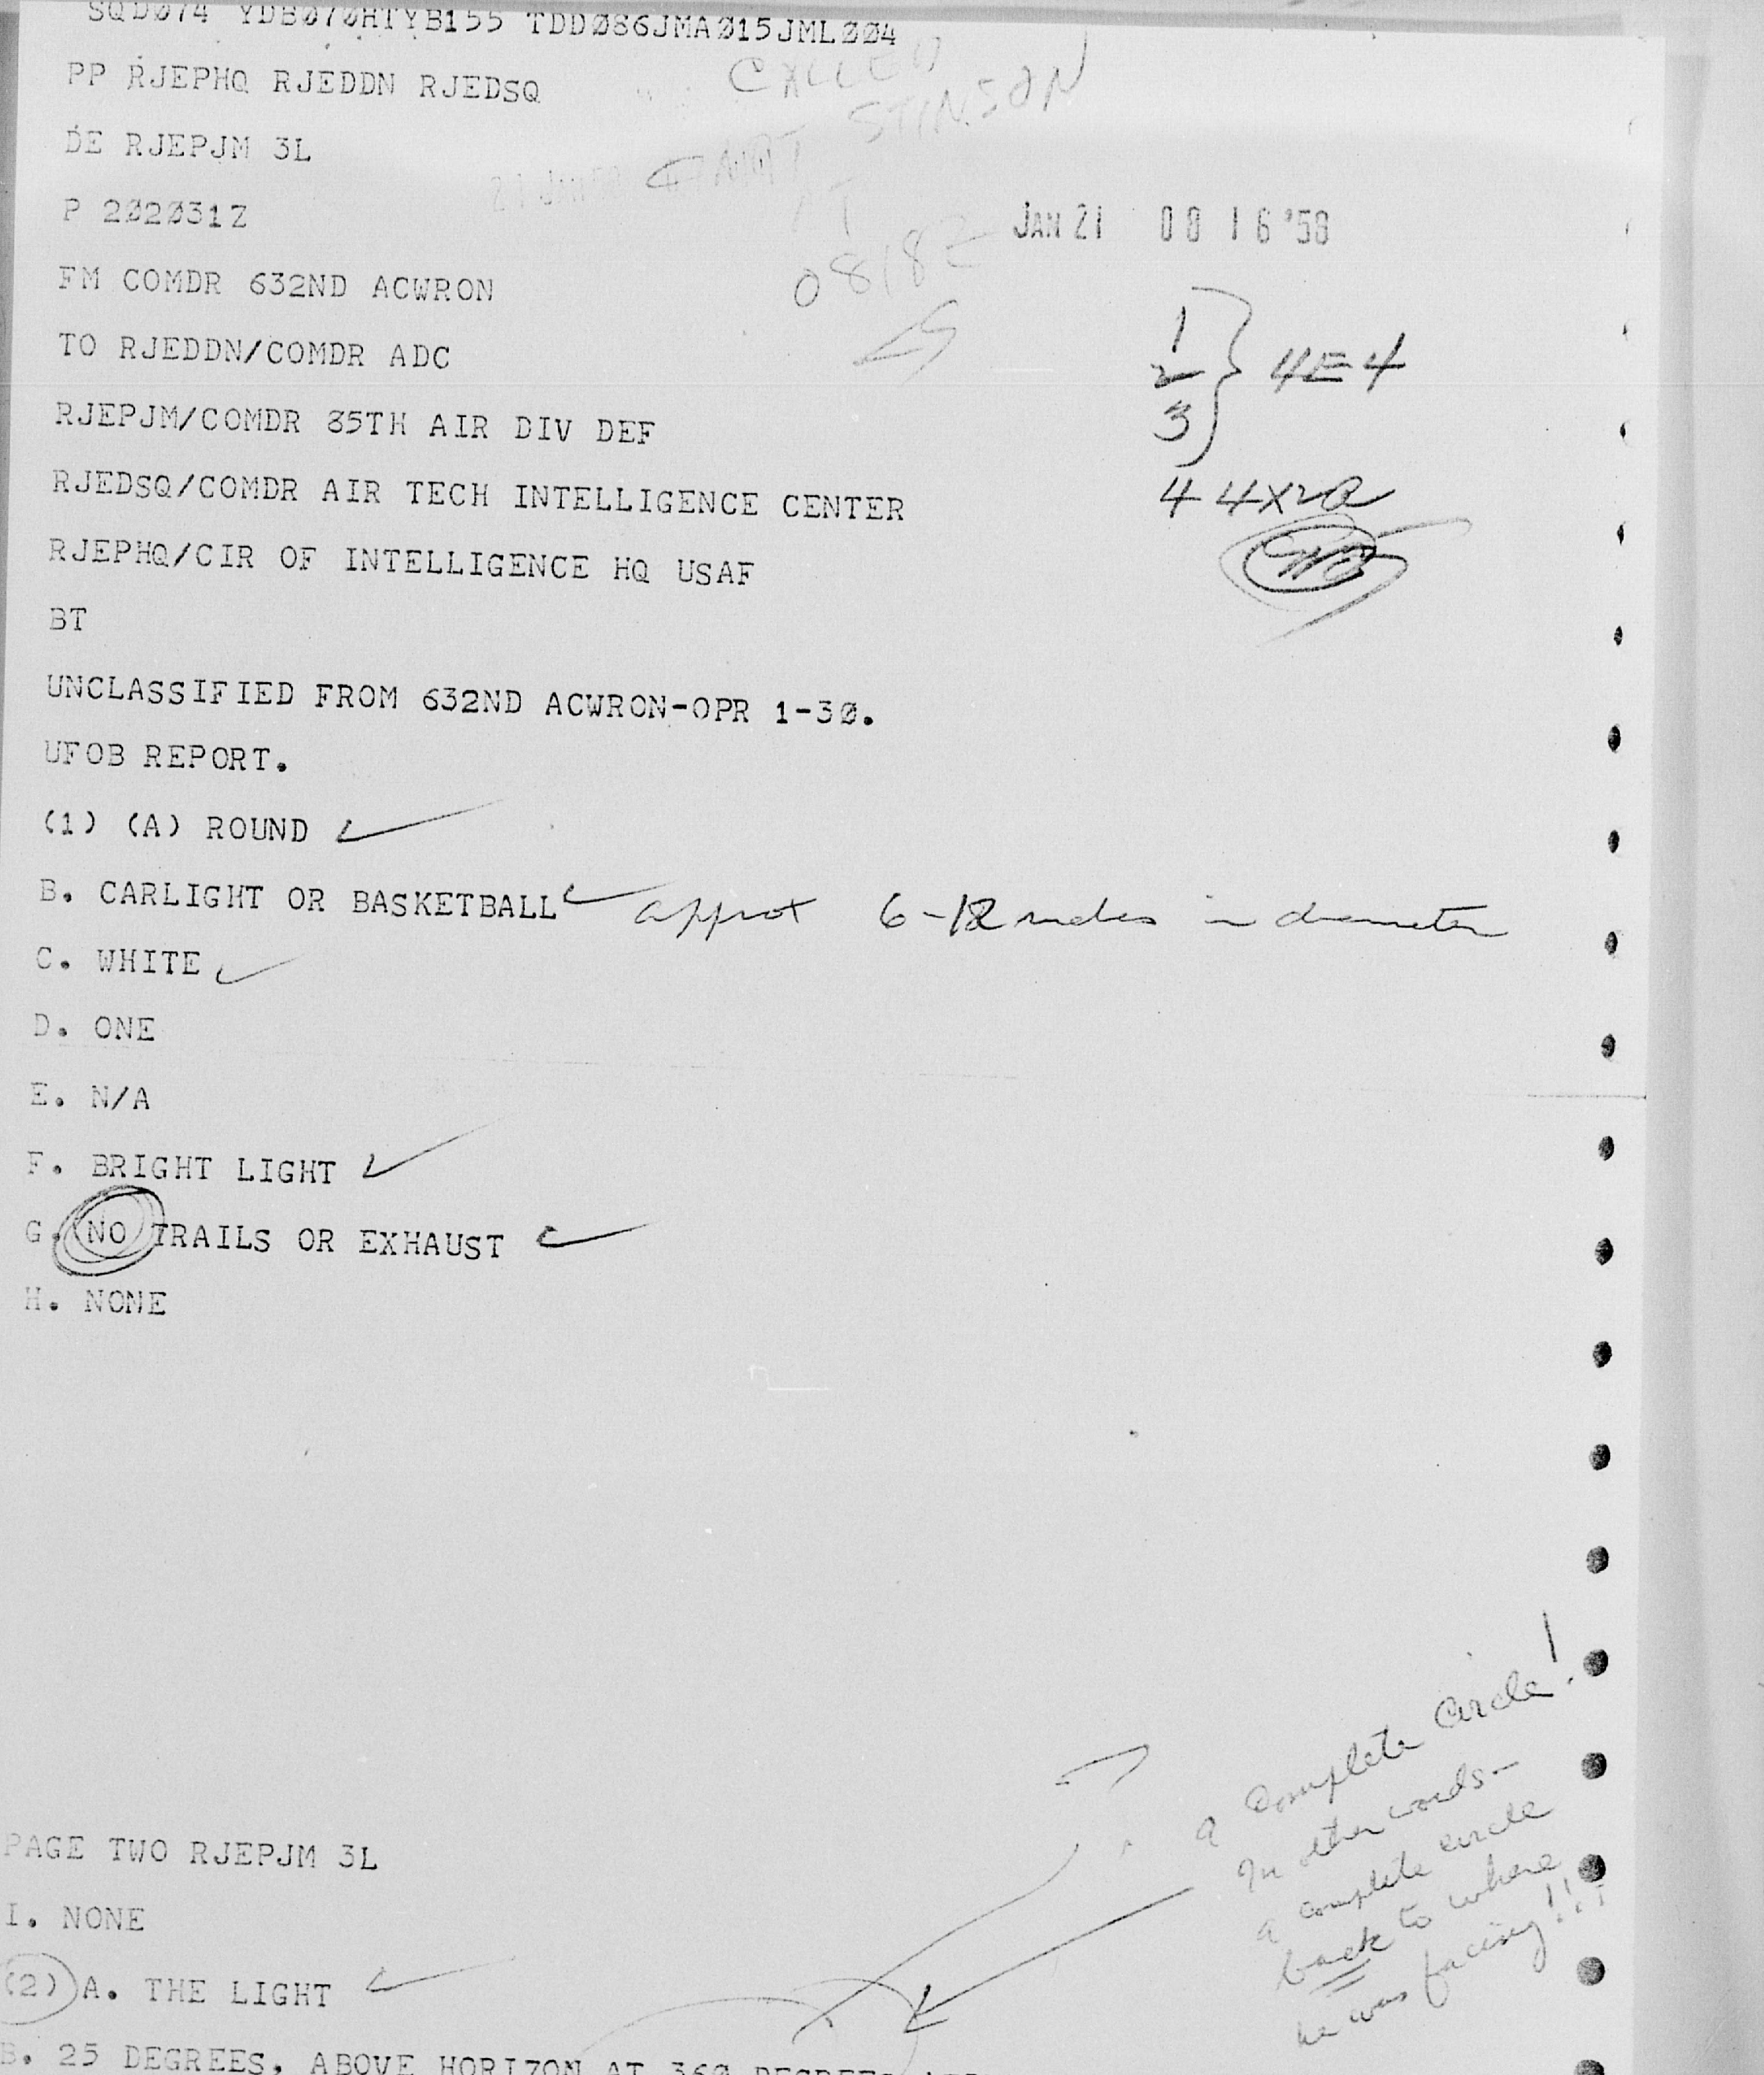 SQD074 YDB070HTYB155 TDD086JMA015JML004
PP RJEPHQ RJEDDN RJEDSQ
CALLED
STINSON
DE RJEPJM 3L
AT
P 202031Z
JAN 21 08 16 '58
0818Z
FM COMDR 632ND ACWRON
TO RJEDDN/COMDR ADC
1
2 } 4E4
3
RJEPJM/COMDR 85TH AIR DIV DEF
RJEDSQ/COMDR AIR TECH INTELLIGENCE CENTER
4 4X2a
RJEPHQ/CIR OF INTELLIGENCE HQ USAF
BT
UNCLASSIFIED FROM 632ND ACWRON-OPR 1-30.
UFOB REPORT.
(1) (A) ROUND
B. CARLIGHT OR BASKETBALL approx 6-12 inches in diameter
C. WHITE
D. ONE
E. N/A
F. BRIGHT LIGHT
G. NO TRAILS OR EXHAUST
H. NONE
a complete circle!
In other words-
a complete circle
back to where
he was facing!!!
PAGE TWO RJEPJM 3L
I. NONE
(2) A. THE LIGHT
B. 25 DEGREES, ABOVE HORIZON AT 360 DEGREES